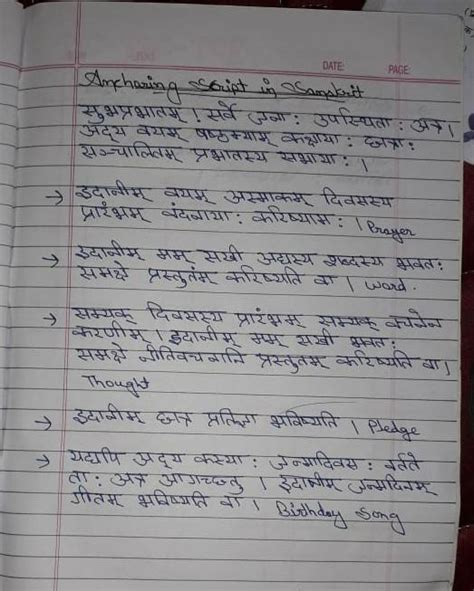 DATE: PAGE:
Anchoring Script in Sanskrit
सुभप्रभातम् | सर्वे जना: उपस्थिता: अत्र |
अद्य वयम् षष्ठम्याम् कक्षाया: छात्रा:
सञ्चालितम् प्रभातस्य सभाया: |
→ इदानीम् वयम् अस्माकम् दिवसस्य
प्रारंभम् वंदनाया: करिष्याम: | Prayer
→ इदानीम् मम् सखी अद्यस्य शब्दस्य भवत:
समक्षे प्रस्तुतंम् करिष्यति वा | word.
→ सम्यक् दिवसस्य प्रारंभम् सम्यक् वचनेन
करणीम् | इदानीम् मम् सखी भवत:
समक्षे नीतिवचनानि प्रस्तुतम् करिष्यति वा |
Thought
→ इदानीम् छात्र प्रतिज्ञा भविष्यति | Pledge
→ यद्यपि अद्य कस्या: जन्मदिवस: वर्तते
ता: अत्र आगच्छन्तु | इदानीम् जन्मदिनम्
गीतम् भविष्यति वा | Birthday Song